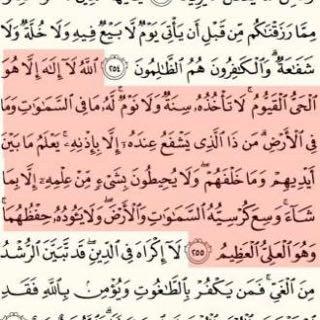 مِمَّا رَزَقْنَٰكُم مِّن قَبْلِ أَن يَأْتِىَ يَوْمٌ لَّا بَيْعٌ فِيهِ وَلَا خُلَّةٌ وَلَا
شَفَٰعَةٌ ۗ وَٱلْكَٰفِرُونَ هُمُ ٱلظَّٰلِمُونَ ٢٥٤ ٱللَّهُ لَآ إِلَٰهَ إِلَّا هُوَ
ٱلْحَىُّ ٱلْقَيُّومُ ۚ لَا تَأْخُذُهُۥ سِنَةٌ وَلَا نَوْمٌ ۚ لَّهُۥ مَا فِى ٱلسَّمَٰوَٰتِ وَمَا
فِى ٱلْأَرْضِ ۗ مَن ذَا ٱلَّذِى يَشْفَعُ عِندَهُۥٓ إِلَّا بِإِذْنِهِۦ ۚ يَعْلَمُ مَا بَيْنَ
أَيْدِيهِمْ وَمَا خَلْفَهُمْ ۖ وَلَا يُحِيطُونَ بِشَىْءٍ مِّنْ عِلْمِهِۦٓ إِلَّا بِمَا
شَآءَ ۚ وَسِعَ كُرْسِيُّهُ ٱلسَّمَٰوَٰتِ وَٱلْأَرْضَ ۖ وَلَا يَـُٔودُهُۥ حِفْظُهُمَا ۚ
وَهُوَ ٱلْعَلِىُّ ٱلْعَظِيمُ ٢٥٥ لَآ إِكْرَاهَ فِى ٱلدِّينِ ۖ قَد تَّبَيَّنَ ٱلرُّشْدُ
مِنَ ٱلْغَىِّ ۚ فَمَن يَكْفُرْ بِٱلطَّٰغُوتِ وَيُؤْمِنۢ بِٱللَّهِ فَقَدِ